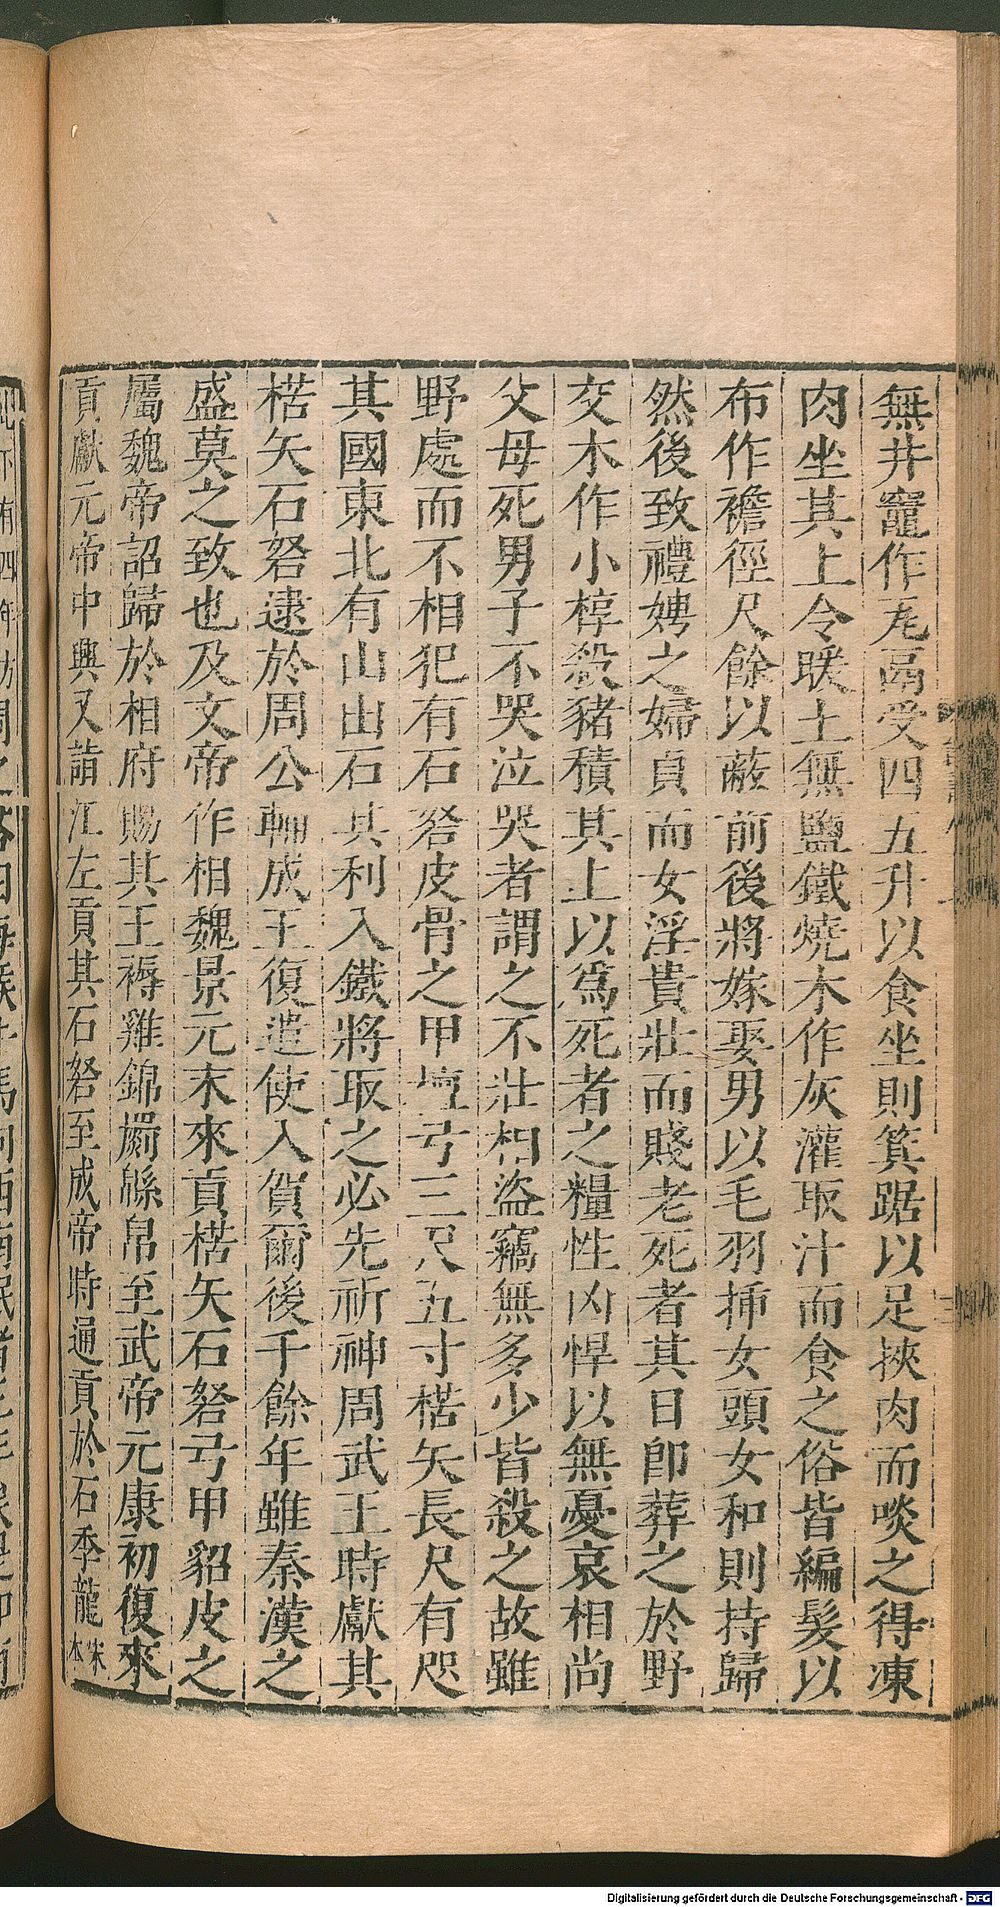 無井竈作瓦鬲受四五升以食坐則箕踞以足挾肉而啖之得凍
肉坐其上令暖土無鹽鐵燒木作灰灌取汁而食之俗皆編髮以
布作襜徑尺餘以蔽前後將嫁娶男以毛羽揷女頭女和則持歸
然後致禮娉之婦貞而女淫貴壯而賤老死者其日卽葬之於野
交木作小椁殺豬積其上以爲死者之糧性凶悍以無憂哀相尚
父母死男子不哭泣哭者謂之不壯相盜竊無多少皆殺之故雖
野處而不相犯有石砮皮骨之甲壇弓三尺五寸楛矢長尺有咫
其國東北有山出石其利入鐵將取之必先祈神周武王時獻其
楛矢石砮逮於周公輔成王復遣使入賀爾後千餘年雖秦漢之
盛莫之致也及文帝作相魏景元末來貢楛矢石砮弓甲貂皮之
屬魏帝詔歸於相府賜其王褥雞錦罽緜帛至武帝元康初復來
貢獻元帝中興又詣江左貢其石砮至成帝時通貢於石季龍宋本
Digitalisierung gefördert durch die Deutsche Forschungsgemeinschaft - DFG